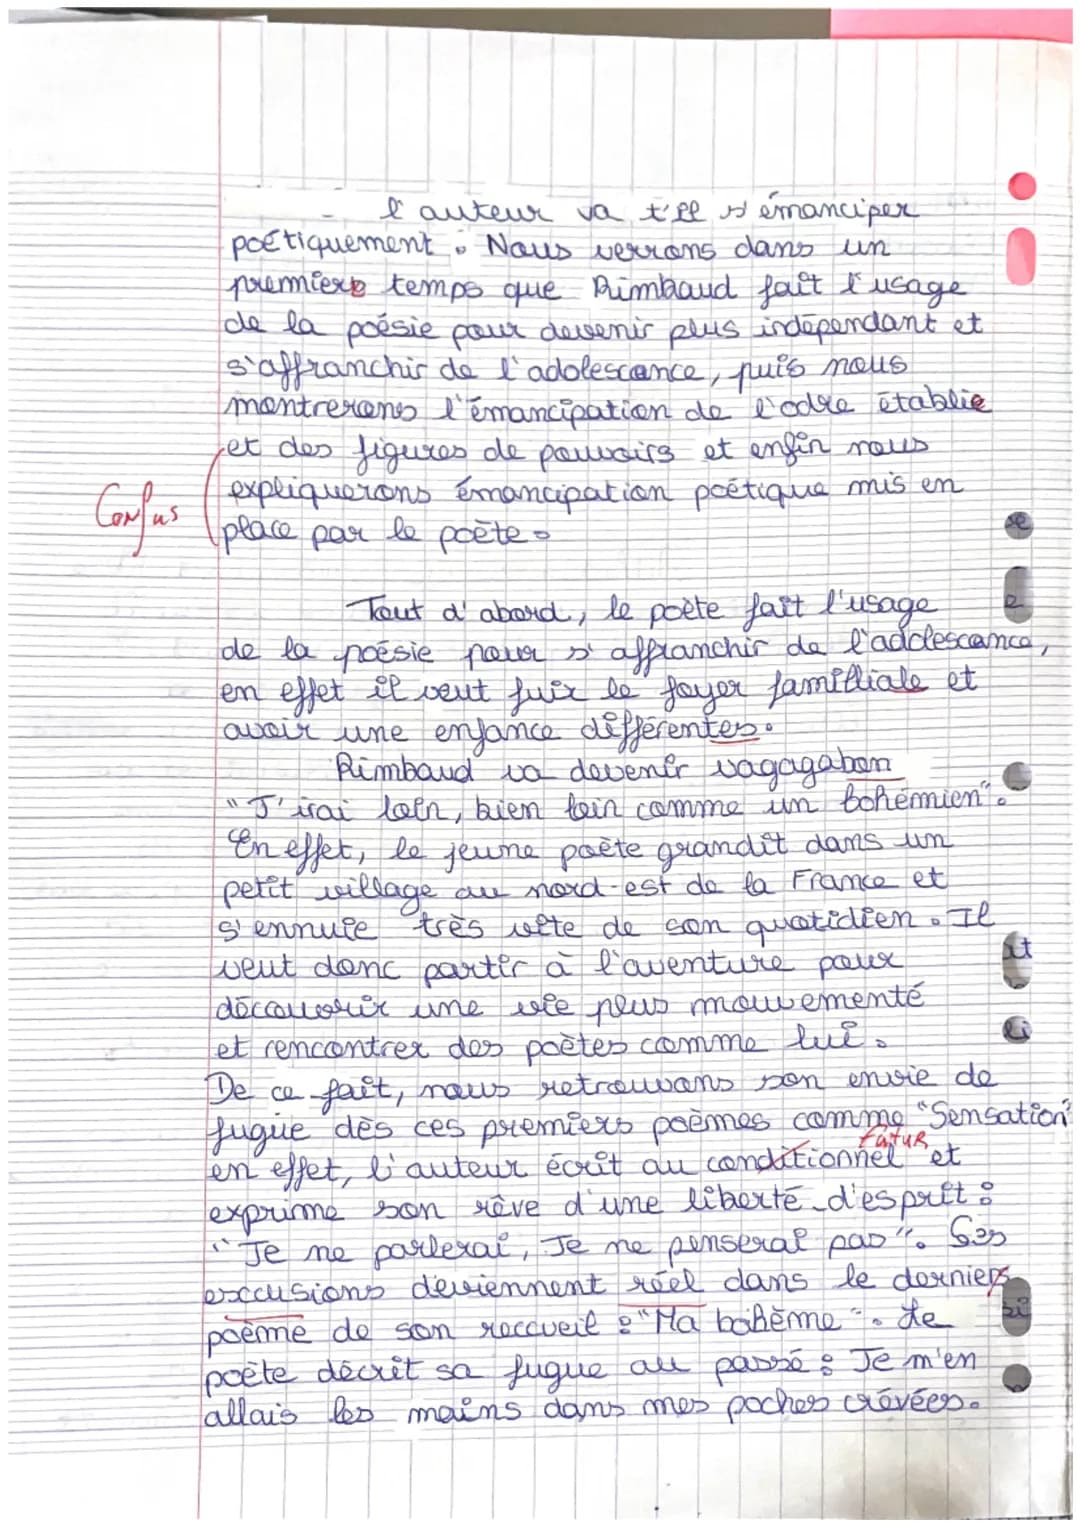 l'auteur va t'il s'émanciper
poétiquement. Nous verrons dans un
premiere temps que Rimbaud fait l'usage
de la poésie pour devenir plus indépendant et
s'affranchir de l'adolescence, puis nous
montrerons l'émancipation de l'odre établie
et des figures de pouvoirs et enfin nous
Confus
expliquerons émancipation poétique mis en
place par le poète.
se
Tout d'abord, le poète fait l'usage
e
de la poésie pour s'affranchir de l'adolescence,
en effet il veut fuir le foyer familliale et
avoir une enfance différentes.
Rimbaud va devenir vagagabon
"J'irai loin, bien loin comme un bohémien".
En effet, le jeune poète grandit dans un
petit village au nord-est de la France et
s'ennuie très vite de son quotidien. Il
veut donc partir à l'aventure pour
découvrir une vie plus mouvementé
et rencontrer des poètes comme lui.
De ce fait, nous retrouvons son envie de
fugue dès ces premiers poèmes comme "Sensation"
futur
en effet, l'auteur écrit au conditionnel et
exprime son rêve d'une liberté d'esprit :
"Je ne parlerai, Je ne penserai pas". Ses
exccusions deviennent réel dans le derniers
poème de son reccueil : "Ma bohème". Le
poète décrit sa fugue au passé : Je m'en
allais les mains dans mes poches crévées.